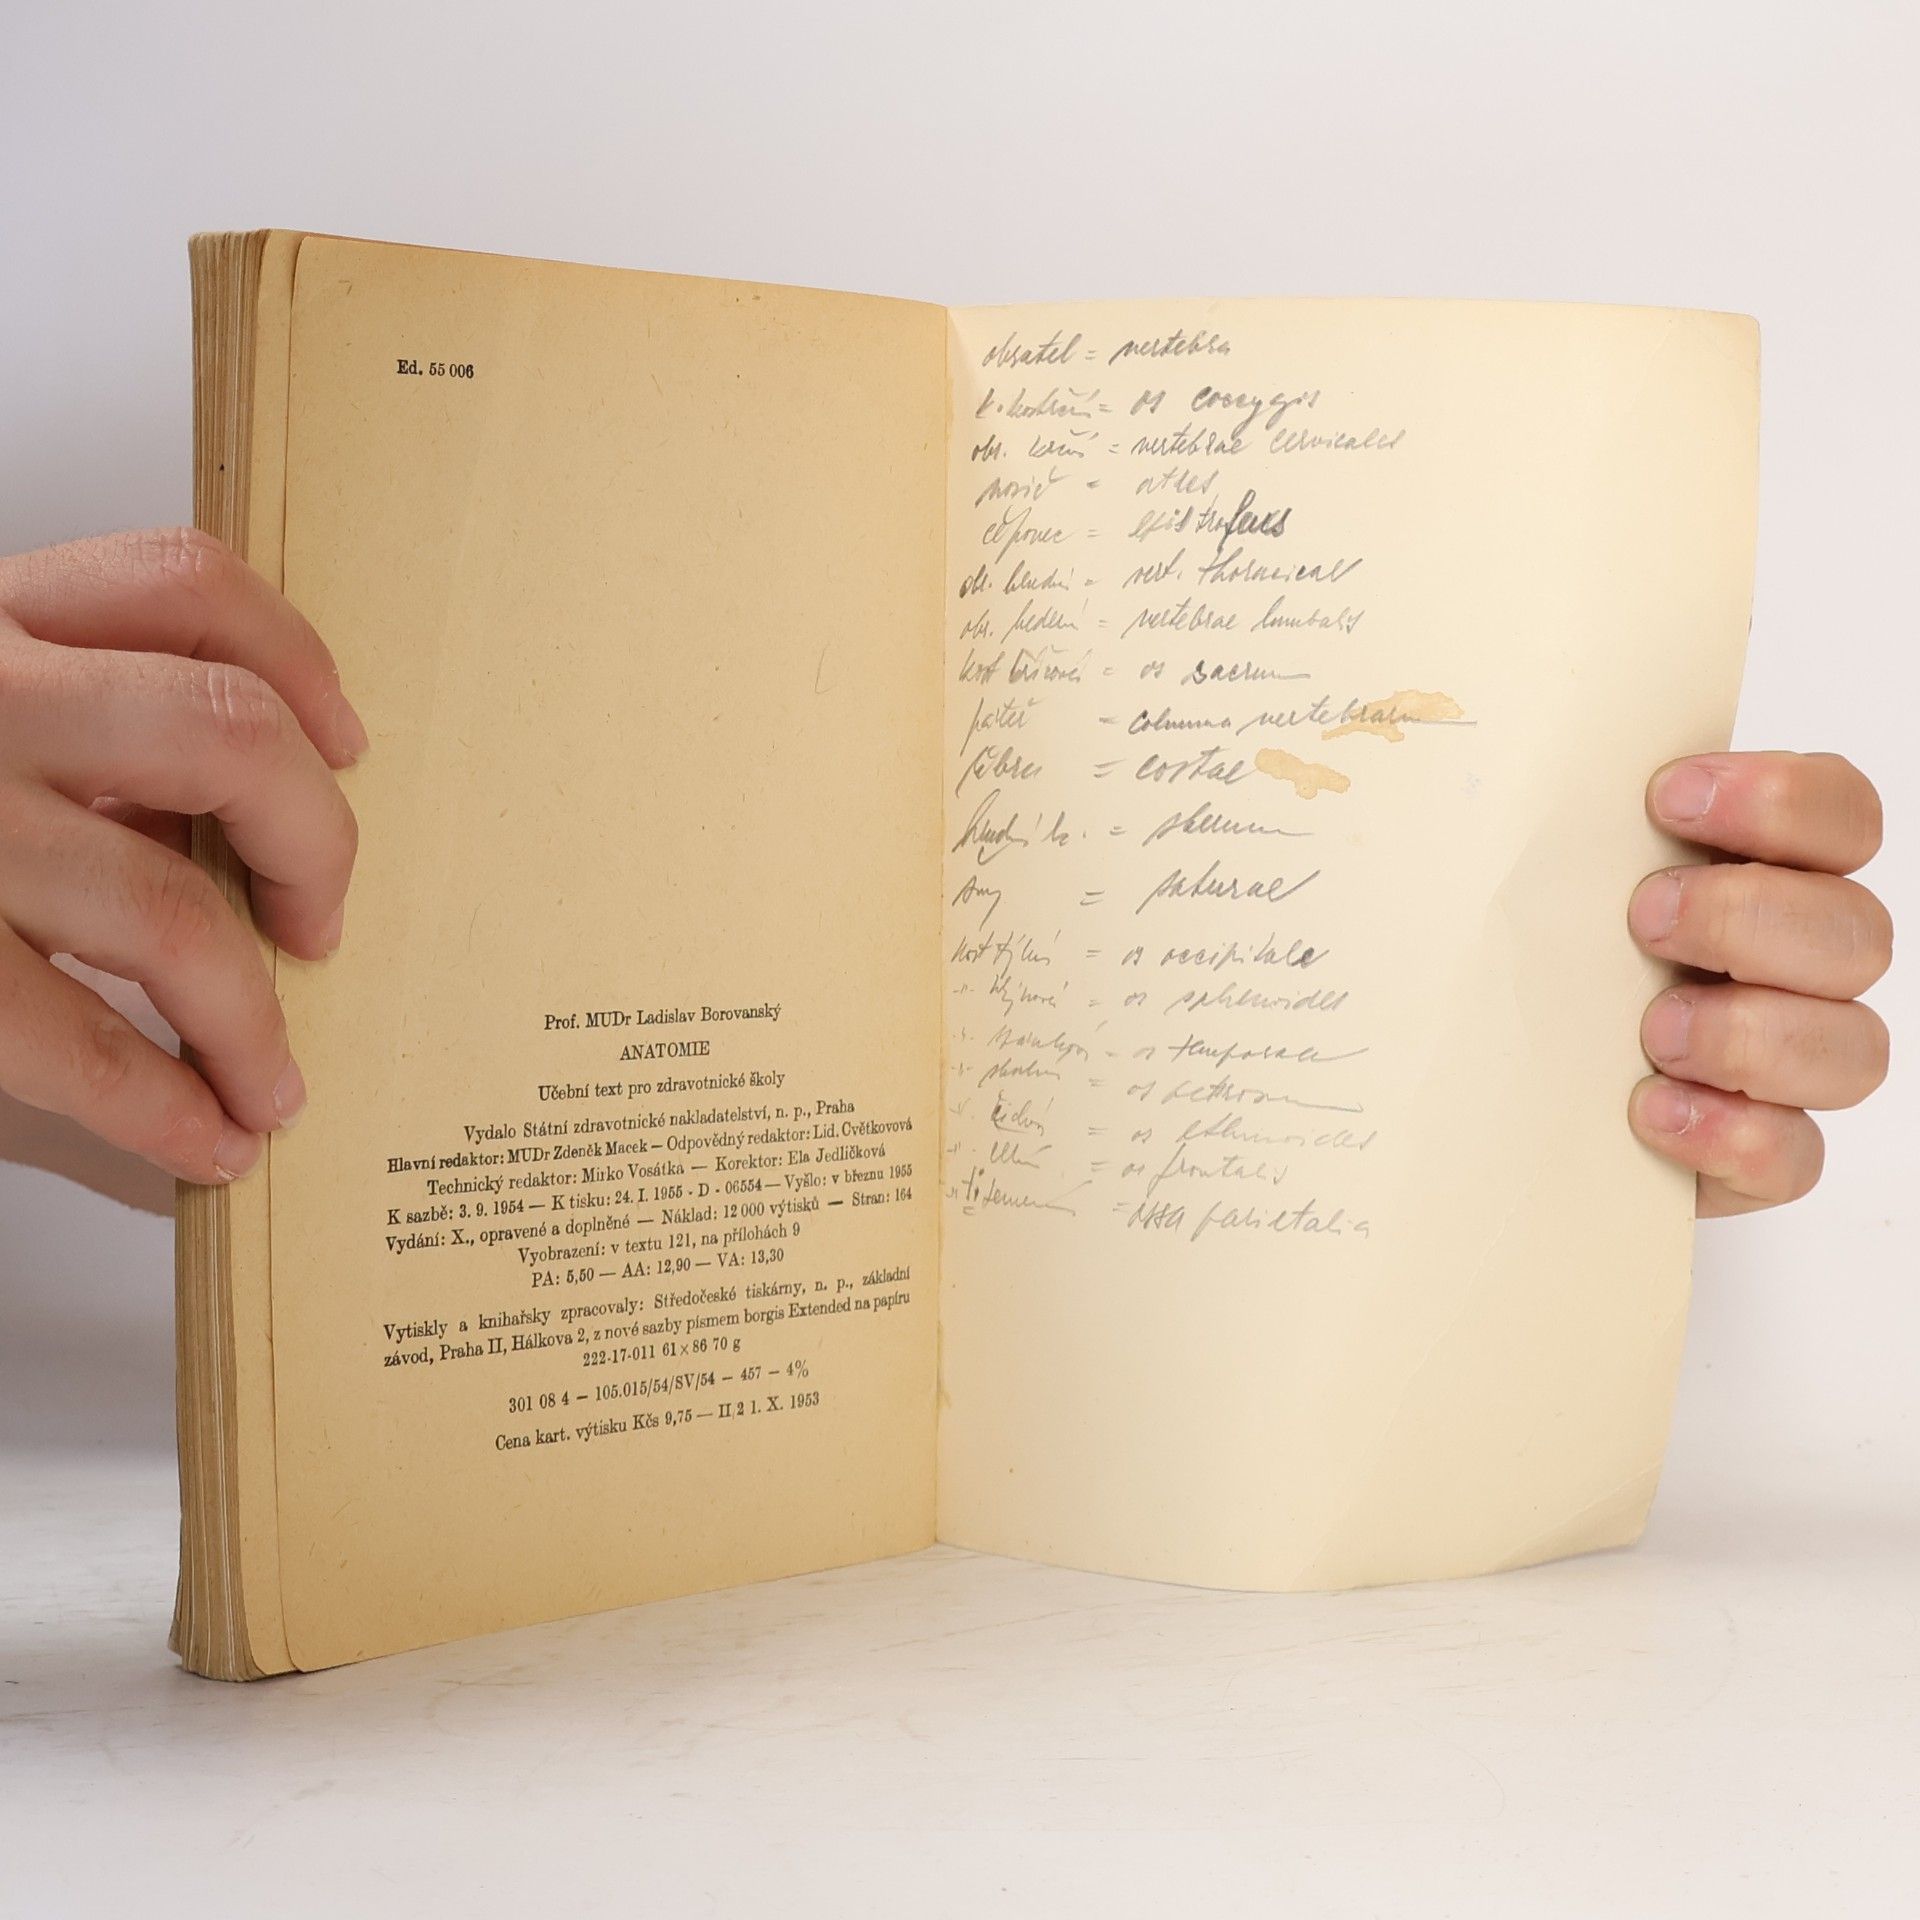 Ed. 55 006
Prof. MUDr Ladislav Borovanský
ANATOMIE
Učební text pro zdravotnické školy
Vydalo Státní zdravotnické nakladatelství, n. p., Praha
Hlavní redaktor: MUDr Zdeněk Macek — Odpovědný redaktor: Lid. Cvětkovová
Technický redaktor: Mirko Vosátka — Korektor: Ela Jedličková
K sazbě: 3. 9. 1954 — K tisku: 24. I. 1955 - D - 06554 — Vyšlo: v březnu 1955
Vydání: X., opravené a doplněné — Náklad: 12 000 výtisků — Stran: 164
Vyobrazení: v textu 121, na přílohách 9
PA: 5,50 — AA: 12,90 — VA: 13,30
Vytiskly a knihařsky zpracovaly: Středočeské tiskárny, n. p., základní
závod, Praha II, Hálkova 2, z nové sazby písmem borgis Extended na papíru
222-17-011 61×86 70 g
301 08 4 — 105.015/54/SV/54 — 457 — 4%
Cena kart. výtisku Kčs 9,75 — II/2 1. X. 1953
obratel = vertebra
k. kostrční = os coccygis
obr. krční = vertebrae cervicales
nosič = atles
čepovec = epistrofeus
obr. hrudní = vert. thoracicae
obr. bederní = vertebrae lumbalis
kost křížová = os sacrum
páteř = columna vertebrarum
žebra = costae
hrudní k. = sternum
švy = suturae
kost týlní = os occipitale
-"- klínová = os sphenoides
-"- spánková = os temporale
-"- skalní = os petrosum
-"- čichová = os ethmoides
-"- čelní = os frontalis
-"- temenní = ossa parietalia